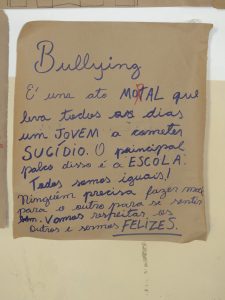 Bullying
É uma ato MOTAL que
leva todos os dias
um JOVEM a cometer
SUCÍDIO. O principal
palco disso é a ESCOLA.
Todos somos iguais!
Ninguém precisa fazer mal
para o outro para se sentir
bem. Vamos respeitar os
outros e sermos FELIZES.